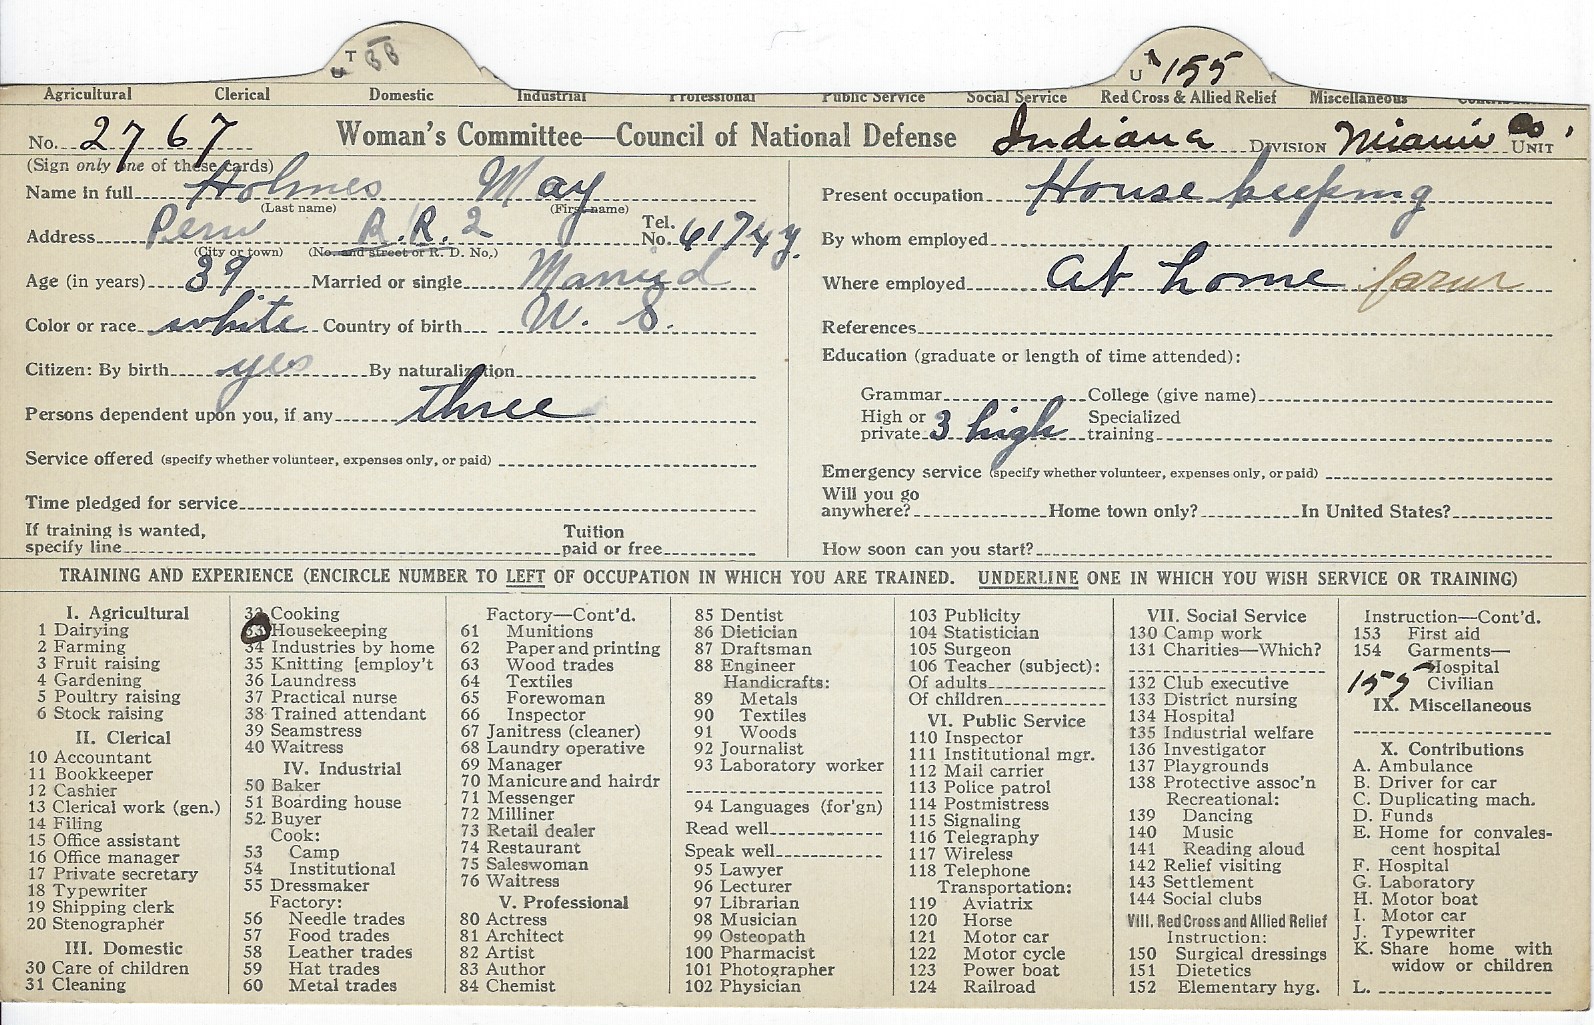 T BB
U 155
Agricultural Clerical Domestic Industrial Professional Public Service Social Service Red Cross & Allied Relief Miscellaneous
No. 2767 Woman's Committee—Council of National Defense Indiana DIVISION Miami Co. UNIT
(Sign only one of these cards)
Name in full Holmes May
(Last name) (First name)
Address Peru R.R. 2 Tel. No. 6174 y.
(City or town) (No. and street or R. D. No.)
Age (in years) 39 Married or single Married
Color or race white Country of birth U. S.
Citizen: By birth yes By naturalization
Persons dependent upon you, if any three
Service offered (specify whether volunteer, expenses only, or paid)
Time pledged for service
If training is wanted,
specify line Tuition paid or free
Present occupation House keeping
By whom employed
Where employed at home farm
References
Education (graduate or length of time attended):
Grammar College (give name)
High or private 3 high Specialized training
Emergency service (specify whether volunteer, expenses only, or paid)
Will you go
anywhere? Home town only? In United States?
How soon can you start?
TRAINING AND EXPERIENCE (ENCIRCLE NUMBER TO LEFT OF OCCUPATION IN WHICH YOU ARE TRAINED. UNDERLINE ONE IN WHICH YOU WISH SERVICE OR TRAINING)
I. Agricultural
1 Dairying
2 Farming
3 Fruit raising
4 Gardening
5 Poultry raising
6 Stock raising
II. Clerical
10 Accountant
11 Bookkeeper
12 Cashier
13 Clerical work (gen.)
14 Filing
15 Office assistant
16 Office manager
17 Private secretary
18 Typewriter
19 Shipping clerk
20 Stenographer
III. Domestic
30 Care of children
31 Cleaning
32 Cooking
33 Housekeeping
34 Industries by home
35 Knitting [employ't
36 Laundress
37 Practical nurse
38 Trained attendant
39 Seamstress
40 Waitress
IV. Industrial
50 Baker
51 Boarding house
52 Buyer
Cook:
53 Camp
54 Institutional
55 Dressmaker
Factory:
56 Needle trades
57 Food trades
58 Leather trades
59 Hat trades
60 Metal trades
Factory—Cont'd.
61 Munitions
62 Paper and printing
63 Wood trades
64 Textiles
65 Forewoman
66 Inspector
67 Janitress (cleaner)
68 Laundry operative
69 Manager
70 Manicure and hairdr
71 Messenger
72 Milliner
73 Retail dealer
74 Restaurant
75 Saleswoman
76 Waitress
V. Professional
80 Actress
81 Architect
82 Artist
83 Author
84 Chemist
85 Dentist
86 Dietician
87 Draftsman
88 Engineer
Handicrafts:
89 Metals
90 Textiles
91 Woods
92 Journalist
93 Laboratory worker
94 Languages (for'gn)
Read well
Speak well
95 Lawyer
96 Lecturer
97 Librarian
98 Musician
99 Osteopath
100 Pharmacist
101 Photographer
102 Physician
103 Publicity
104 Statistician
105 Surgeon
106 Teacher (subject):
Of adults
Of children
VI. Public Service
110 Inspector
111 Institutional mgr.
112 Mail carrier
113 Police patrol
114 Postmistress
115 Signaling
116 Telegraphy
117 Wireless
118 Telephone
Transportation:
119 Aviatrix
120 Horse
121 Motor car
122 Motor cycle
123 Power boat
124 Railroad
VII. Social Service
130 Camp work
131 Charities—Which?
132 Club executive
133 District nursing
134 Hospital
135 Industrial welfare
136 Investigator
137 Playgrounds
138 Protective assoc'n
Recreational:
139 Dancing
140 Music
141 Reading aloud
142 Relief visiting
143 Settlement
144 Social clubs
VIII. Red Cross and Allied Relief
Instruction:
150 Surgical dressings
151 Dietetics
152 Elementary hyg.
Instruction—Cont'd.
153 First aid
154 Garments—
Hospital
155 Civilian
IX. Miscellaneous
X. Contributions
A. Ambulance
B. Driver for car
C. Duplicating mach.
D. Funds
E. Home for convales-
cent hospital
F. Hospital
G. Laboratory
H. Motor boat
I. Motor car
J. Typewriter
K. Share home with
widow or children
L.